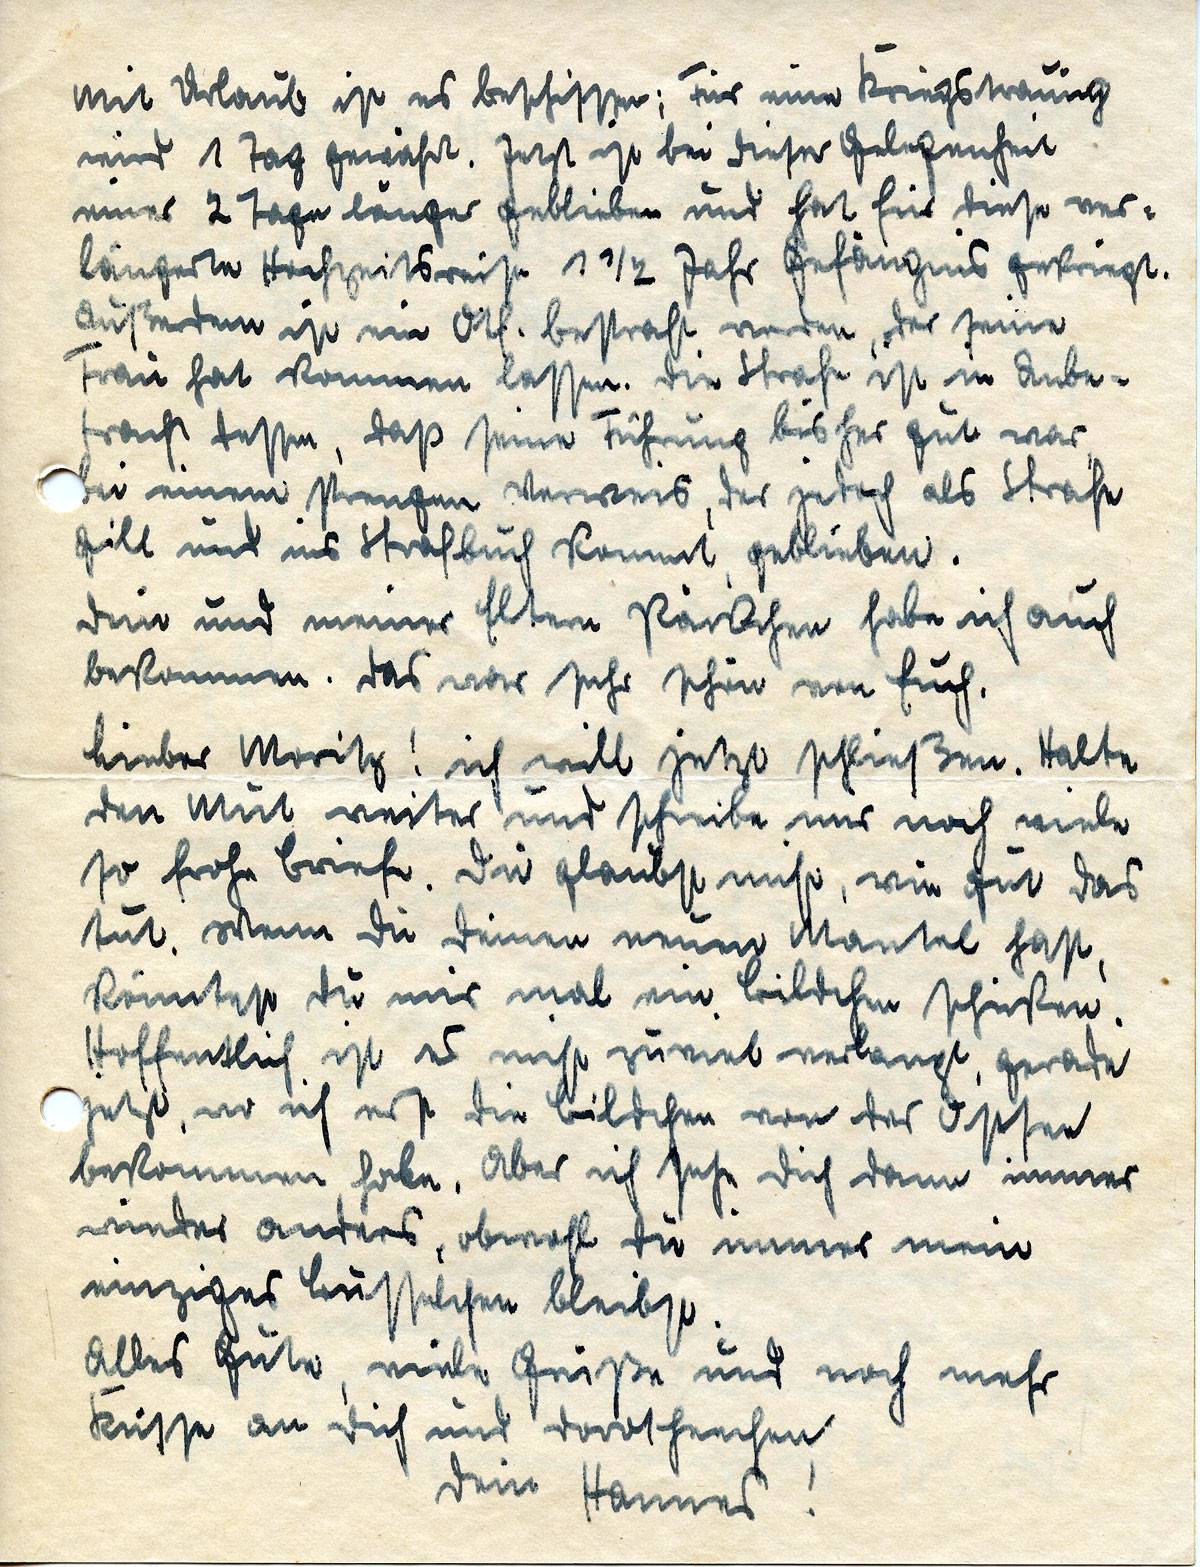 Mit Urlaub ist es beschissen; Für eine Kriegstrauung
wird 1 Tag gewährt. Jetzt ist bei dieser Gelegenheit
einer 2 Tage länger geblieben und hat für diese ver=
längerte Hochzeitsreise 1 1/2 Jahr Gefängnis gekriegt.
Außerdem ist ein Otf. bestraft worden, der seine
Frau hat kommen lassen. Die Strafe ist in Anbe=
tracht dessen, daß seine Führung bisher gut war,
bei einem strengen Verweis, der jedoch als Strafe
gilt und ins Strafbuch kommt, geblieben.
Dein und meiner Eltern Päckchen habe ich auch
bekommen. Das war sehr schön von Euch.
Lieber Moritz! ich will jetzt schließen. Halte
den Mut weiter und schreibe mir noch viele
so frohe Briefe. Du glaubst nicht, wie gut das
tut. Wenn Du Deinen neuen Mantel hast,
könntest Du mir mal ein Bildchen schicken.
Hoffentlich ist es nicht zuviel verlangt, gerade
jetzt, wo ich erst die Bildchen von der Ostsee
bekommen habe. Aber ich sehe Dich dann immer
wieder anders, obwohl Du immer mein
einziges Busselchen bleibst.
Alles Gute, viele Grüße und noch mehr
Küsse an Dich und Dorotheechen
Dein Hannes!